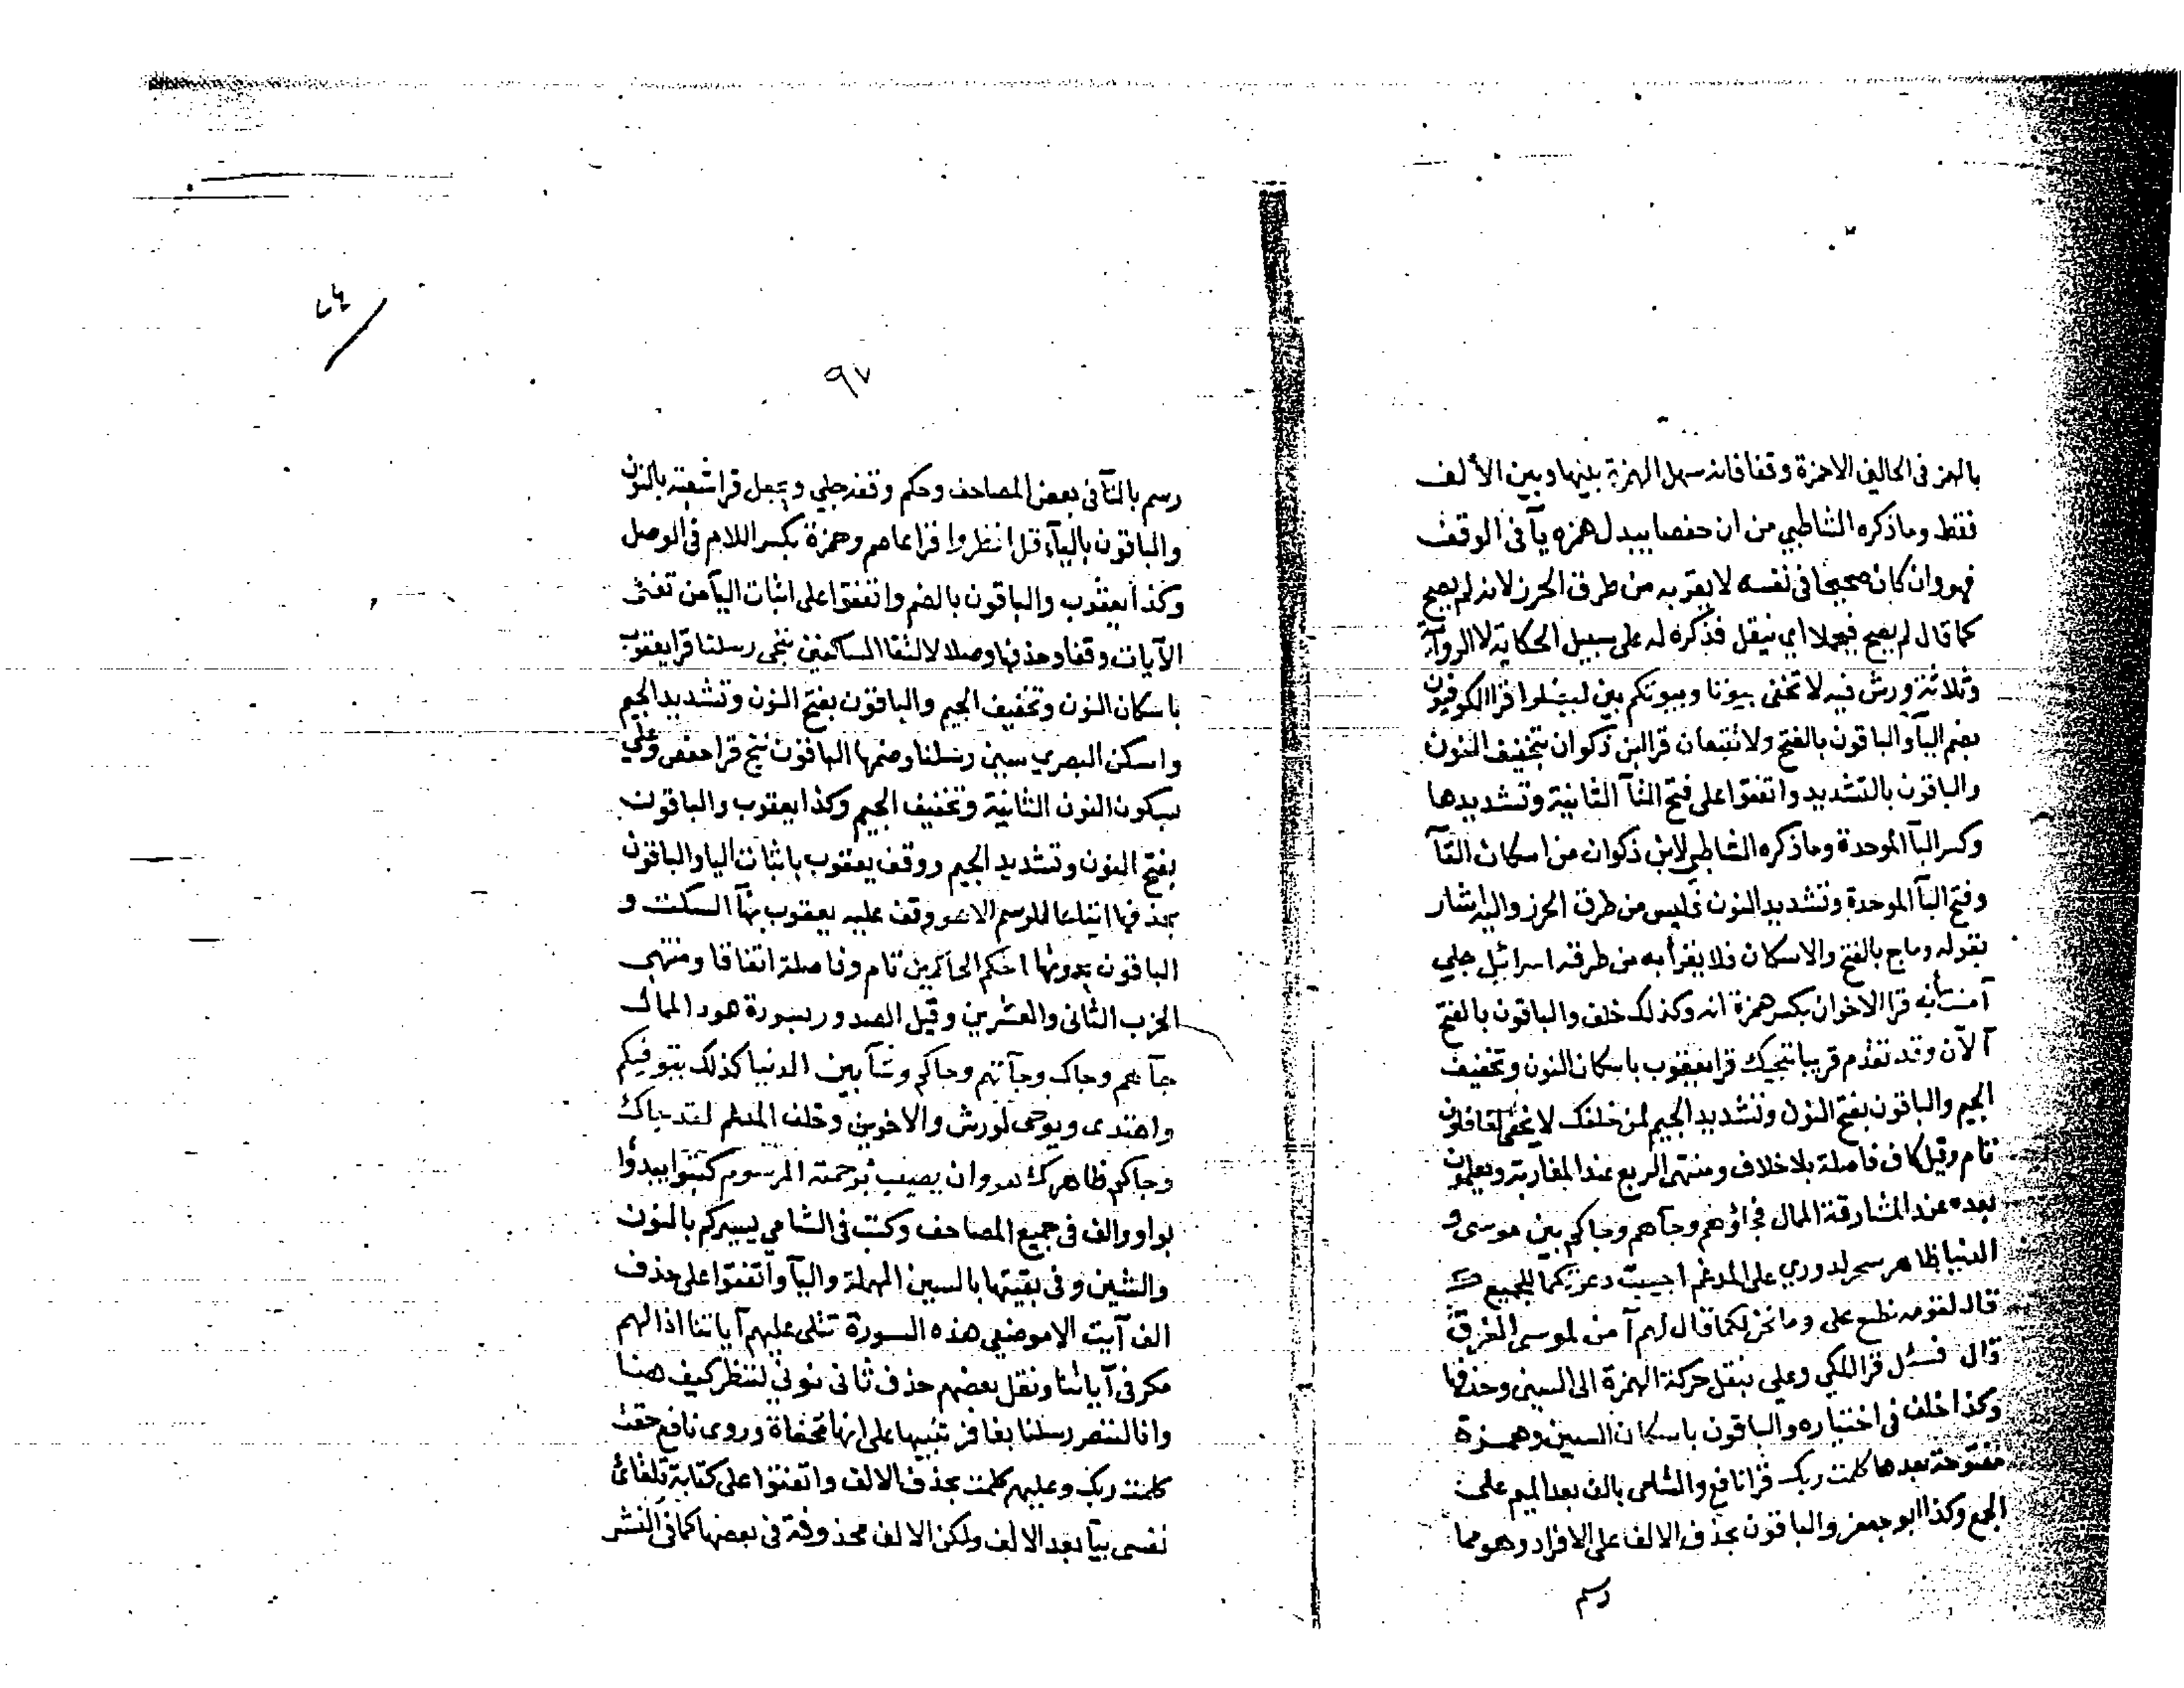 بالهمز في الحالين الا حمزة وقفا فانه سهل الهمزة بينها وبين الألف
فقط وما ذكره الشاطبي من ان حفصا يبدل همزه يآ في الوقف
فهو وان كان صحيحا في نفسه لا يقرء به من طرق الحرز لانه لم يصح
كما قال لم يصح فيحملا اي فينقل فذكره له على سبيل الحكاية لا الرواية
وثلاثة ورش فيه لا تخفى بيوتا وبيوتكم بين ليضلوا قرا الكوفيون
بضم اليآ والباقون بالفتح ولا تتبعان قرا ابن ذكوان بتخفيف النون
والباقون بالتشديد واتفقوا على فتح التآ الثانية وتشديدها
وكسر البآ الموحدة وما ذكره الشاطبي لابن ذكوان من اسكان التآ
وفتح البآ الموحدة وتشديد النون فليس من طرق الحرز واليه اشار
بقوله وماج بالفتح والاسكان فلا يقرأ به من طرقه اسرائيل جلي
آمنت أنه قرا الاخوان بكسر همزة انه وكذلك خلف والباقون بالفتح
آلآن وقد تقدم قريبا ننجيك قرا يعقوب باسكان النون وتخفيف
الجيم والباقون بفتح النون وتشديد الجيم لمن خلفك لا يخفى لغافلون
تام وقيل كاف فاصلة بلا خلاف ومنتهى الربع عند المغاربة ويعلمون
بعده عند المشارقة الممال فجاؤهم وجآهم وجاكم بين موسى و
الدنيا ظاهر سحر لدوري على المدغم اجيبت دعوتكما للجميع ك
قال لقومه نطبع على وما نحن لكما قال لهم آمن لموسى الغرق
قال فسئل قرا المكي وعلي بنقل حركة الهمزة الى السين وحذفها
وكذا خلف في اختياره والباقون باسكان السين وهمزة
مفتوحة بعدها كلمت ربك قرا نافع والشامي بالف بعد الميم على
الجمع وكذا ابو جعفر والباقون بحذف الالف على الافراد وهو مما
رسم
٩٧
رسم بالتآ في بعض المصاحف وحكم وقفه جلي ويجعل قرا شعبة بالنون
والباقون باليآء قل انظروا قرا عاصم وحمزة بكسر اللام في الوصل
وكذا يعقوب والباقون بالضم واتفقوا على اثبات اليآ من تغنى
الآيات وقفا وحذفها وصلا لالتقا الساكنين ننجى رسلنا قرا يعقوب
باسكان النون وتخفيف الجيم والباقون بفتح النون وتشديد الجيم
واسكن البصري سين رسلنا وضمها الباقون ننج قرا حفص وعلي
بسكون النون الثانية وتخفيف الجيم وكذا يعقوب والباقون
بفتح النون وتشديد الجيم ووقف يعقوب باثبات اليا والباقون
بحذفها اتباعا للرسم الا هو وقف عليه يعقوب بهآ السكت و
الباقون بدونها احكم الحاكمين تام وفاصلة اتفاقا ومنتهى
الحزب الثاني والعشرين وقيل الصدور بسورة هود الممال
جآهم وجاك وجآتهم وجاكم وشآ بين الدنيا كذلك يتوفيكم
واهتدى ويوحى لورش والاخوين وخلف المدغم لقد جاك
وجاكم ظاهر ك هو وان يصيب به حمته المرسوم كتبوا يبدؤا
بواو والف في جميع المصاحف وكتب في الشامي يسيركم بالنون
والشين وفي بقيتها بالسين المهملة واليآ واتفقوا على حذف
الف آيت الا موضعي هذه السورة تتلى عليهم آياتنا اذا لهم
مكر في آياتنا ونقل بعضهم حذف ثاني نوني لننظر كيف هنا
وانا لننصر رسلنا بغافر تنبيها على انها مخفاة وروى نافع حقت
كلمت ربك وعليهم كلمت بحذف الالف واتفقوا على كتابة تلقائ
نفسي بيآ بعد الالف ولكن الالف محذوفة في بعضها كما في النشر